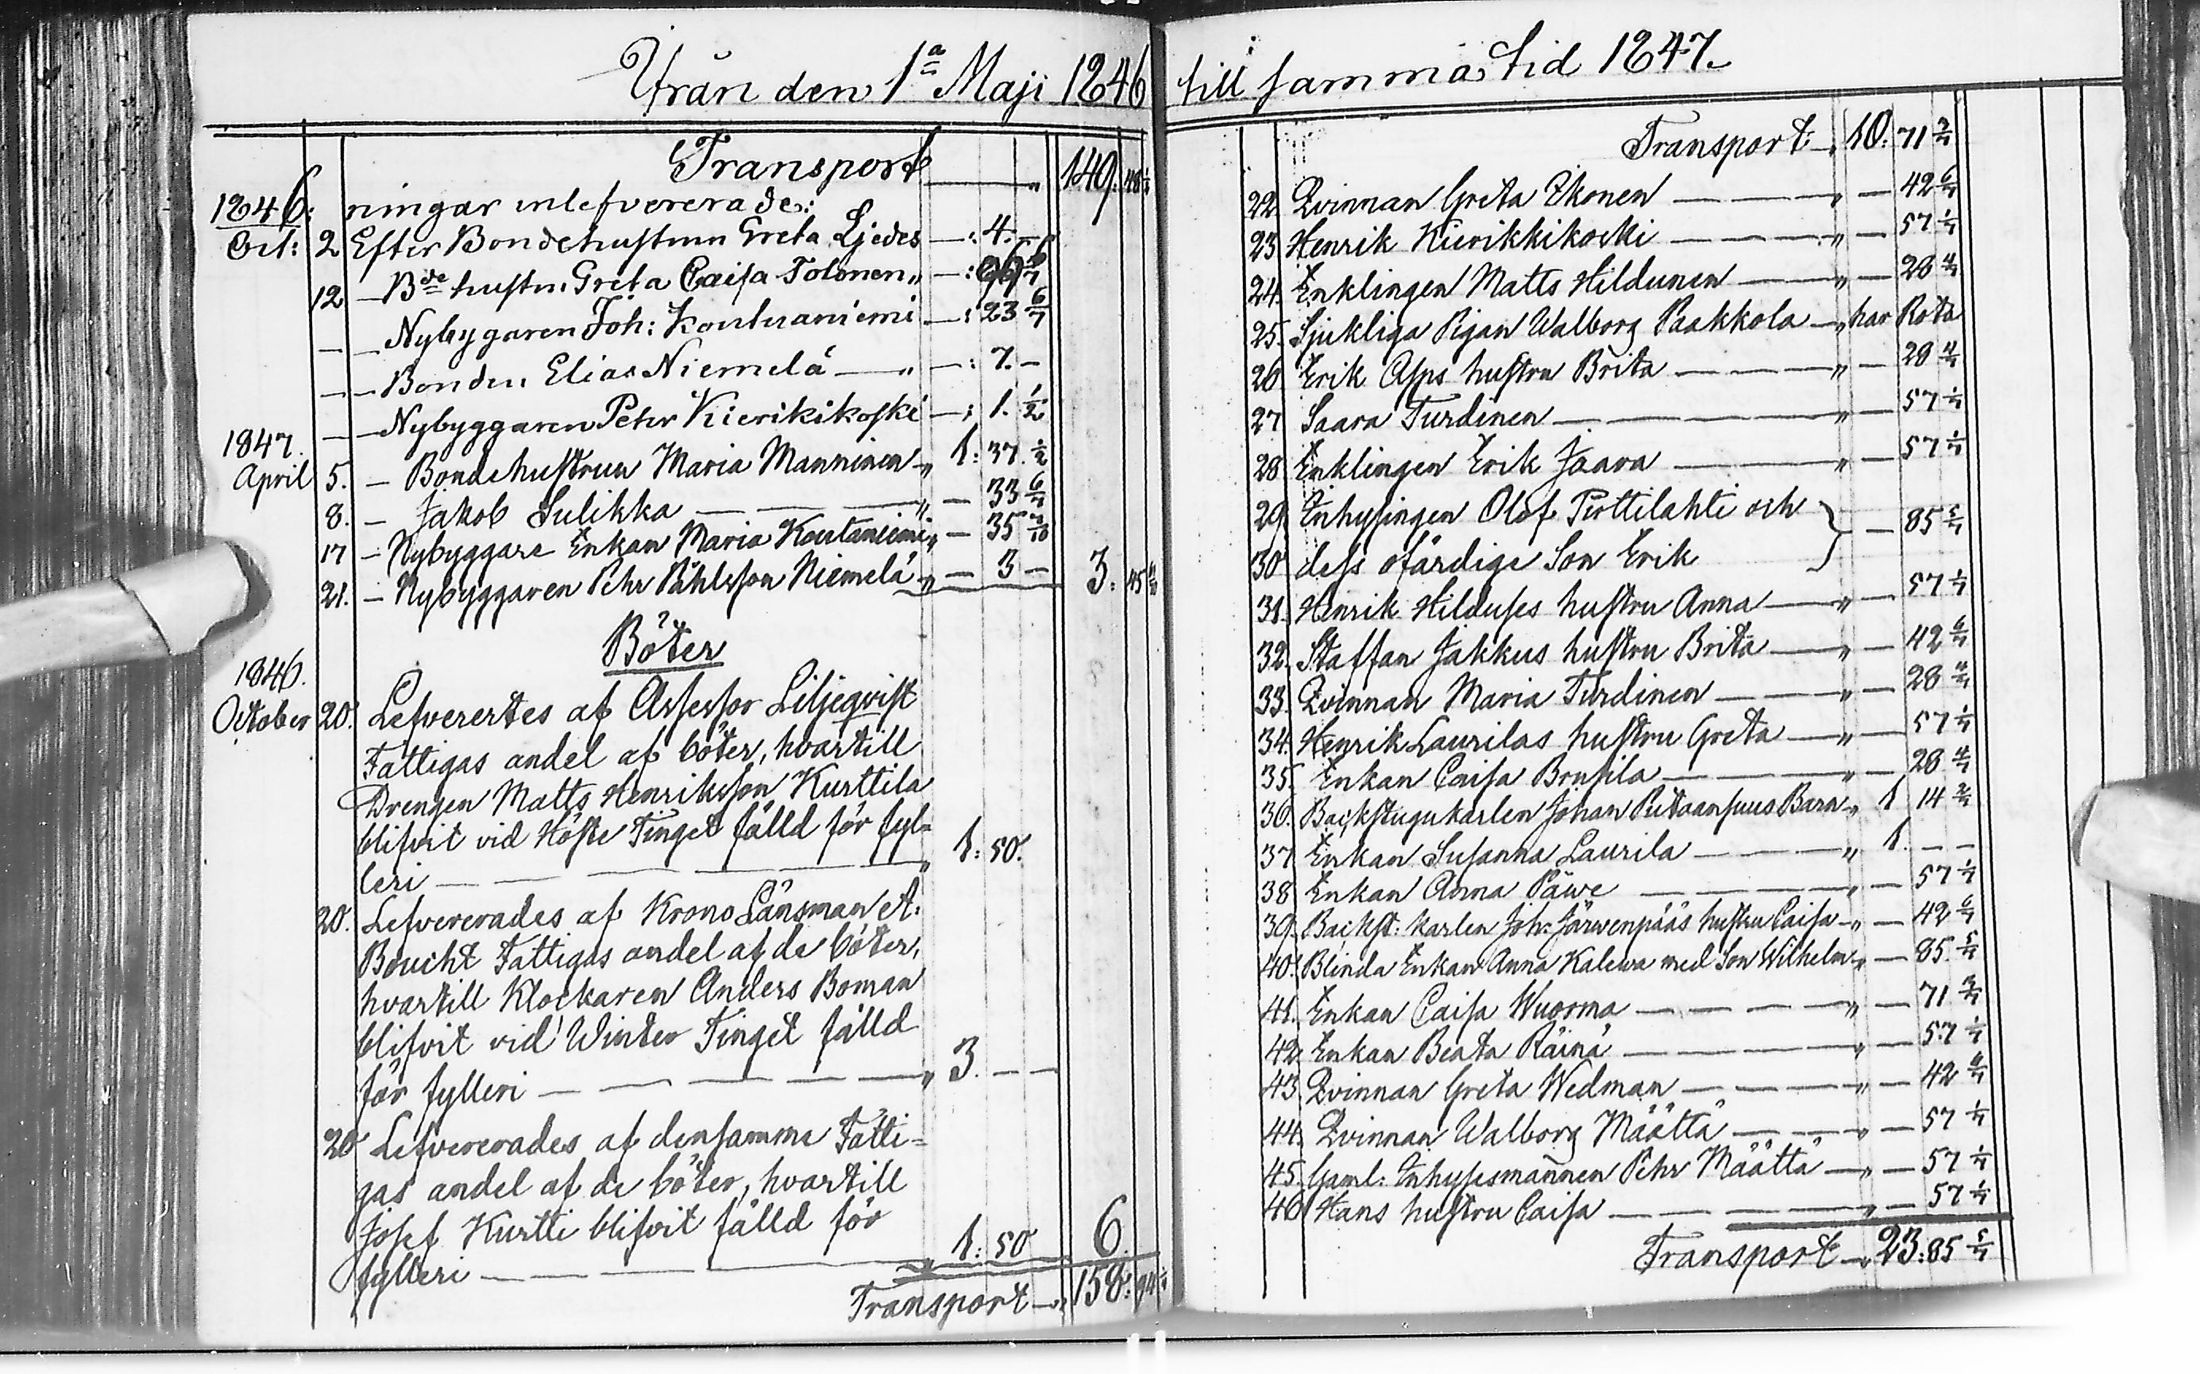 Ifrån den 1a Maji 1846
Transport 149:
1846: ningar inlefvererade:
Oct: 2 Efter Bondehustrun Greta Ljedes —: 4. –
12 — Bde hustn: Greta Caisa Tolonen „ —: 6/7
— — Nybygaren Joh: Koutuaniemi —: 23 6/7
— — Bonden Elias Niemelä — „ —: 7. –
— — Nybyggaren Pehr Kierikikoski —: 1. 1/2
1847.
April 5. — Bondehustrun Maria Manninen „ 1: 37. 1/2
8. — Jakob Sulikka — — — „ — 33 6/7
17 — Nybyggare Enkan Maria Koutaniemi „ — 35
21. — Nybyggaren Pehr Påhlsson Niemelä „ — 3 – 3: 45
Böter
1846.
October 20. Lefverertes af Assessor Liljeqvist
Fattigas andel af böter, hvartill
Drengen Matts Henriksson Kurttila
blifvit vid Höste Tinget fälld för fyl=
leri — — — — — „ 1: 50.
20. Lefvererades af Krono Länsman A:
Boucht Fattigas andel af de böter,
hvartill Klockaren Anders Boman
blifvit vid Winter Tinget fälld
för fylleri — — — — „ 3. – –
20 Lefvererades af densamma Fatti=
gas andel af de böter, hvartill
Josef Kurtti blifvit fälld för
fylleri — — — — „ 1: 50 6.
Transport — „ 158:
till samma tid 1847.
Transport: — „ 10: 71 3/7
22. Qvinnan Greta Ikonen — — — „ — 42 6/7
23 Henrik Kierikkikoski — — — „ — 57 1/7
24. Enklingen Matts Hildunen — — „ — 28 4/7
25. Sjukliga Pigan Walborg Paakkola — „ har Rota
26 Erik Asps hustru Brita — — — „ — 28 4/7
27 Saara Turdinen — — — — „ — 57 1/7
28 Enklingen Erik Jaara — — — „ — 57 1/7
29 Inhysingen Olof Pirttilahti och } — 85 5/7
30 dess ofärdige Son Erik
31. Henrik Hilduses hustru Anna — „ — 57 1/7
32. Staffan Jakkus hustru Brita — „ — 42 6/7
33. Qvinnan Maria Turdinen — — „ — 28 4/7
34. Henrik Laurilas hustru Greta — „ — 57 1/7
35. Enkan Caisa Brusila — — — „ — 28 4/7
36. Backstugukarlen Johan Putaansuus Barn „ 1 14 2/7
37 Enkan Susanna Laurila — — — „ 1. – –
38 Enkan Anna Päwe — — — „ — 57 1/7
39. Backst: karlen Joh: Järwenpääs hustru Caisa „ — 42 6/7
40. Blinda Enkan Anna Kalewa med Son Wilhelm „ — 85. 5/7
41. Enkan Caisa Wuorma — — — „ — 71 3/7
42. Enkan Beata Räinä — — — „ — 57 1/7
43. Qvinnan Greta Wedman — — — „ — 42 6/7
44. Qvinnan Walborg Määttä — — „ — 57 1/7
45. Gaml: Inhysesmannen Pehr Määttä — „ — 57 1/7
46 Hans hustru Caisa — — — „ — 57 1/7
Transport — „ 23: 85 5/7